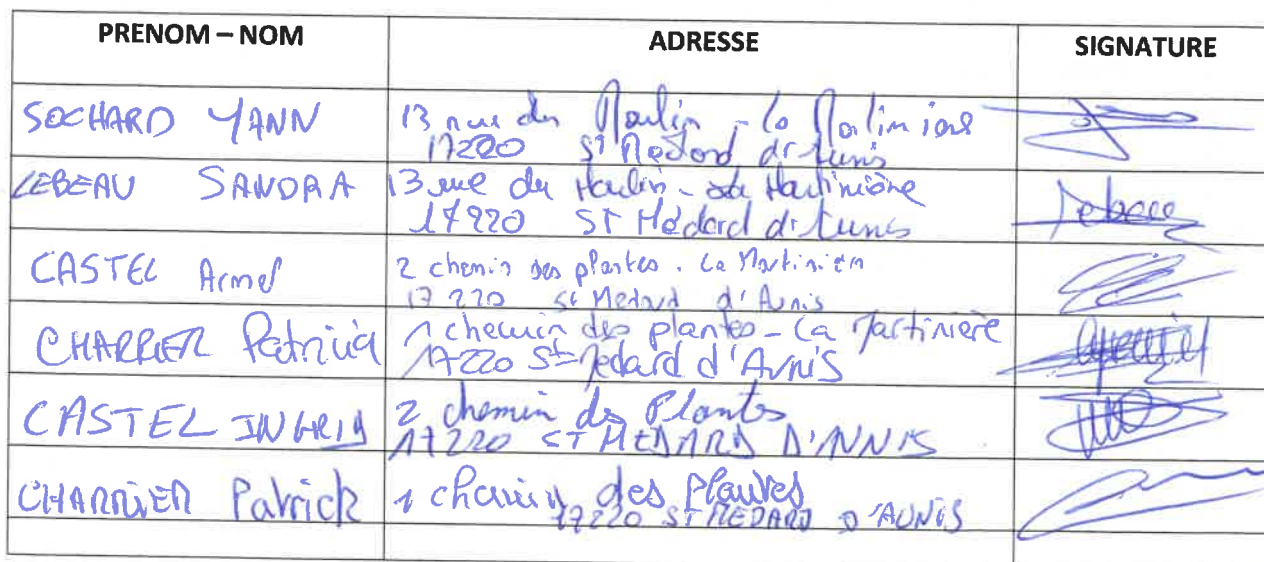 PRENOM – NOM
ADRESSE
SIGNATURE
SOCHARD YANN
13 rue du Moulin - La Martinière
17220 St Médard d'Aunis
LEBEAU SANDRA
13 rue du Moulin - La Martinière
17220 ST Médard d'Aunis
CASTEL Armel
2 chemin des plantes. La Martinière
17 220 St Medard d'Aunis
CHARRIER Patricia
1 chemin des plantes - La Martinière
17220 St Medard d'Aunis
CASTEL INGRID
2 chemin des Plantes
17220 ST MEDARD D'AUNIS
CHARRIER Patrick
1 chemin des Plantes
17220 ST MEDARD D'AUNIS